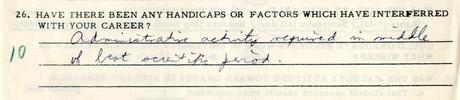 26. HAVE THERE BEEN ANY HANDICAPS OR FACTORS WHICH HAVE INTERFERRED
WITH YOUR CAREER?
10
Administrative activity required in middle
of best scientific period.